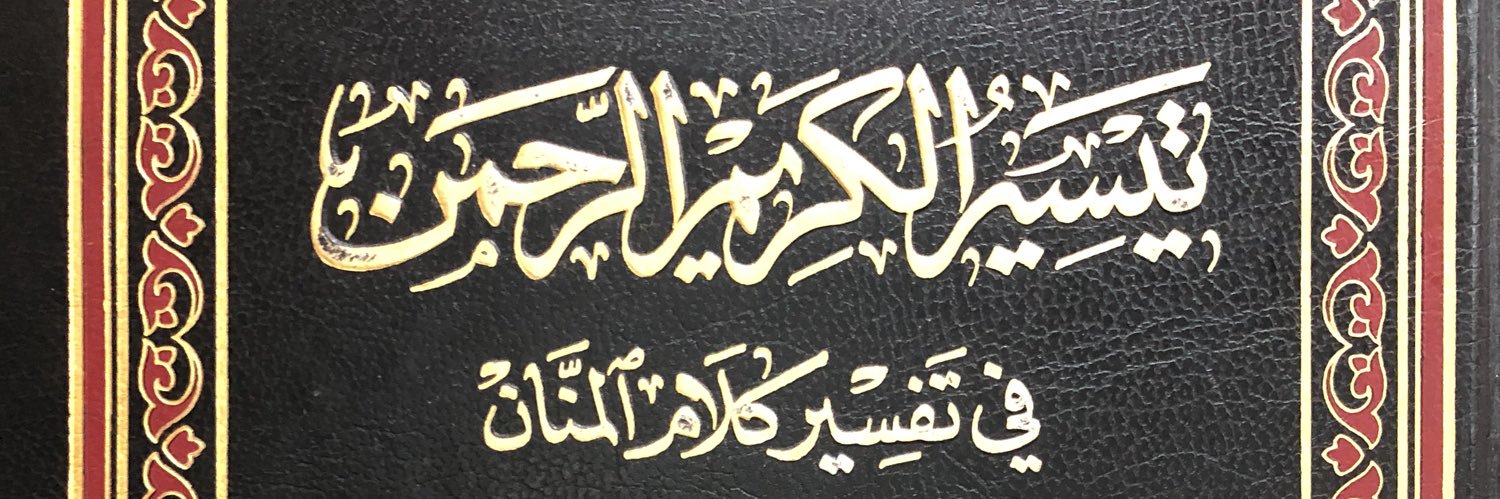 تَيْسِيرُ الكَرِيمِ الرَّحْمَنِ
فِي تَفْسِيرِ كَلَامِ ٱلمَنَّانِ